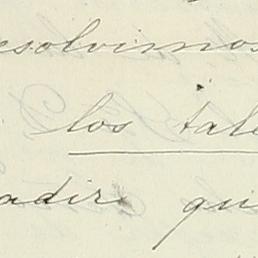 esolvimos
los tale
adir qui